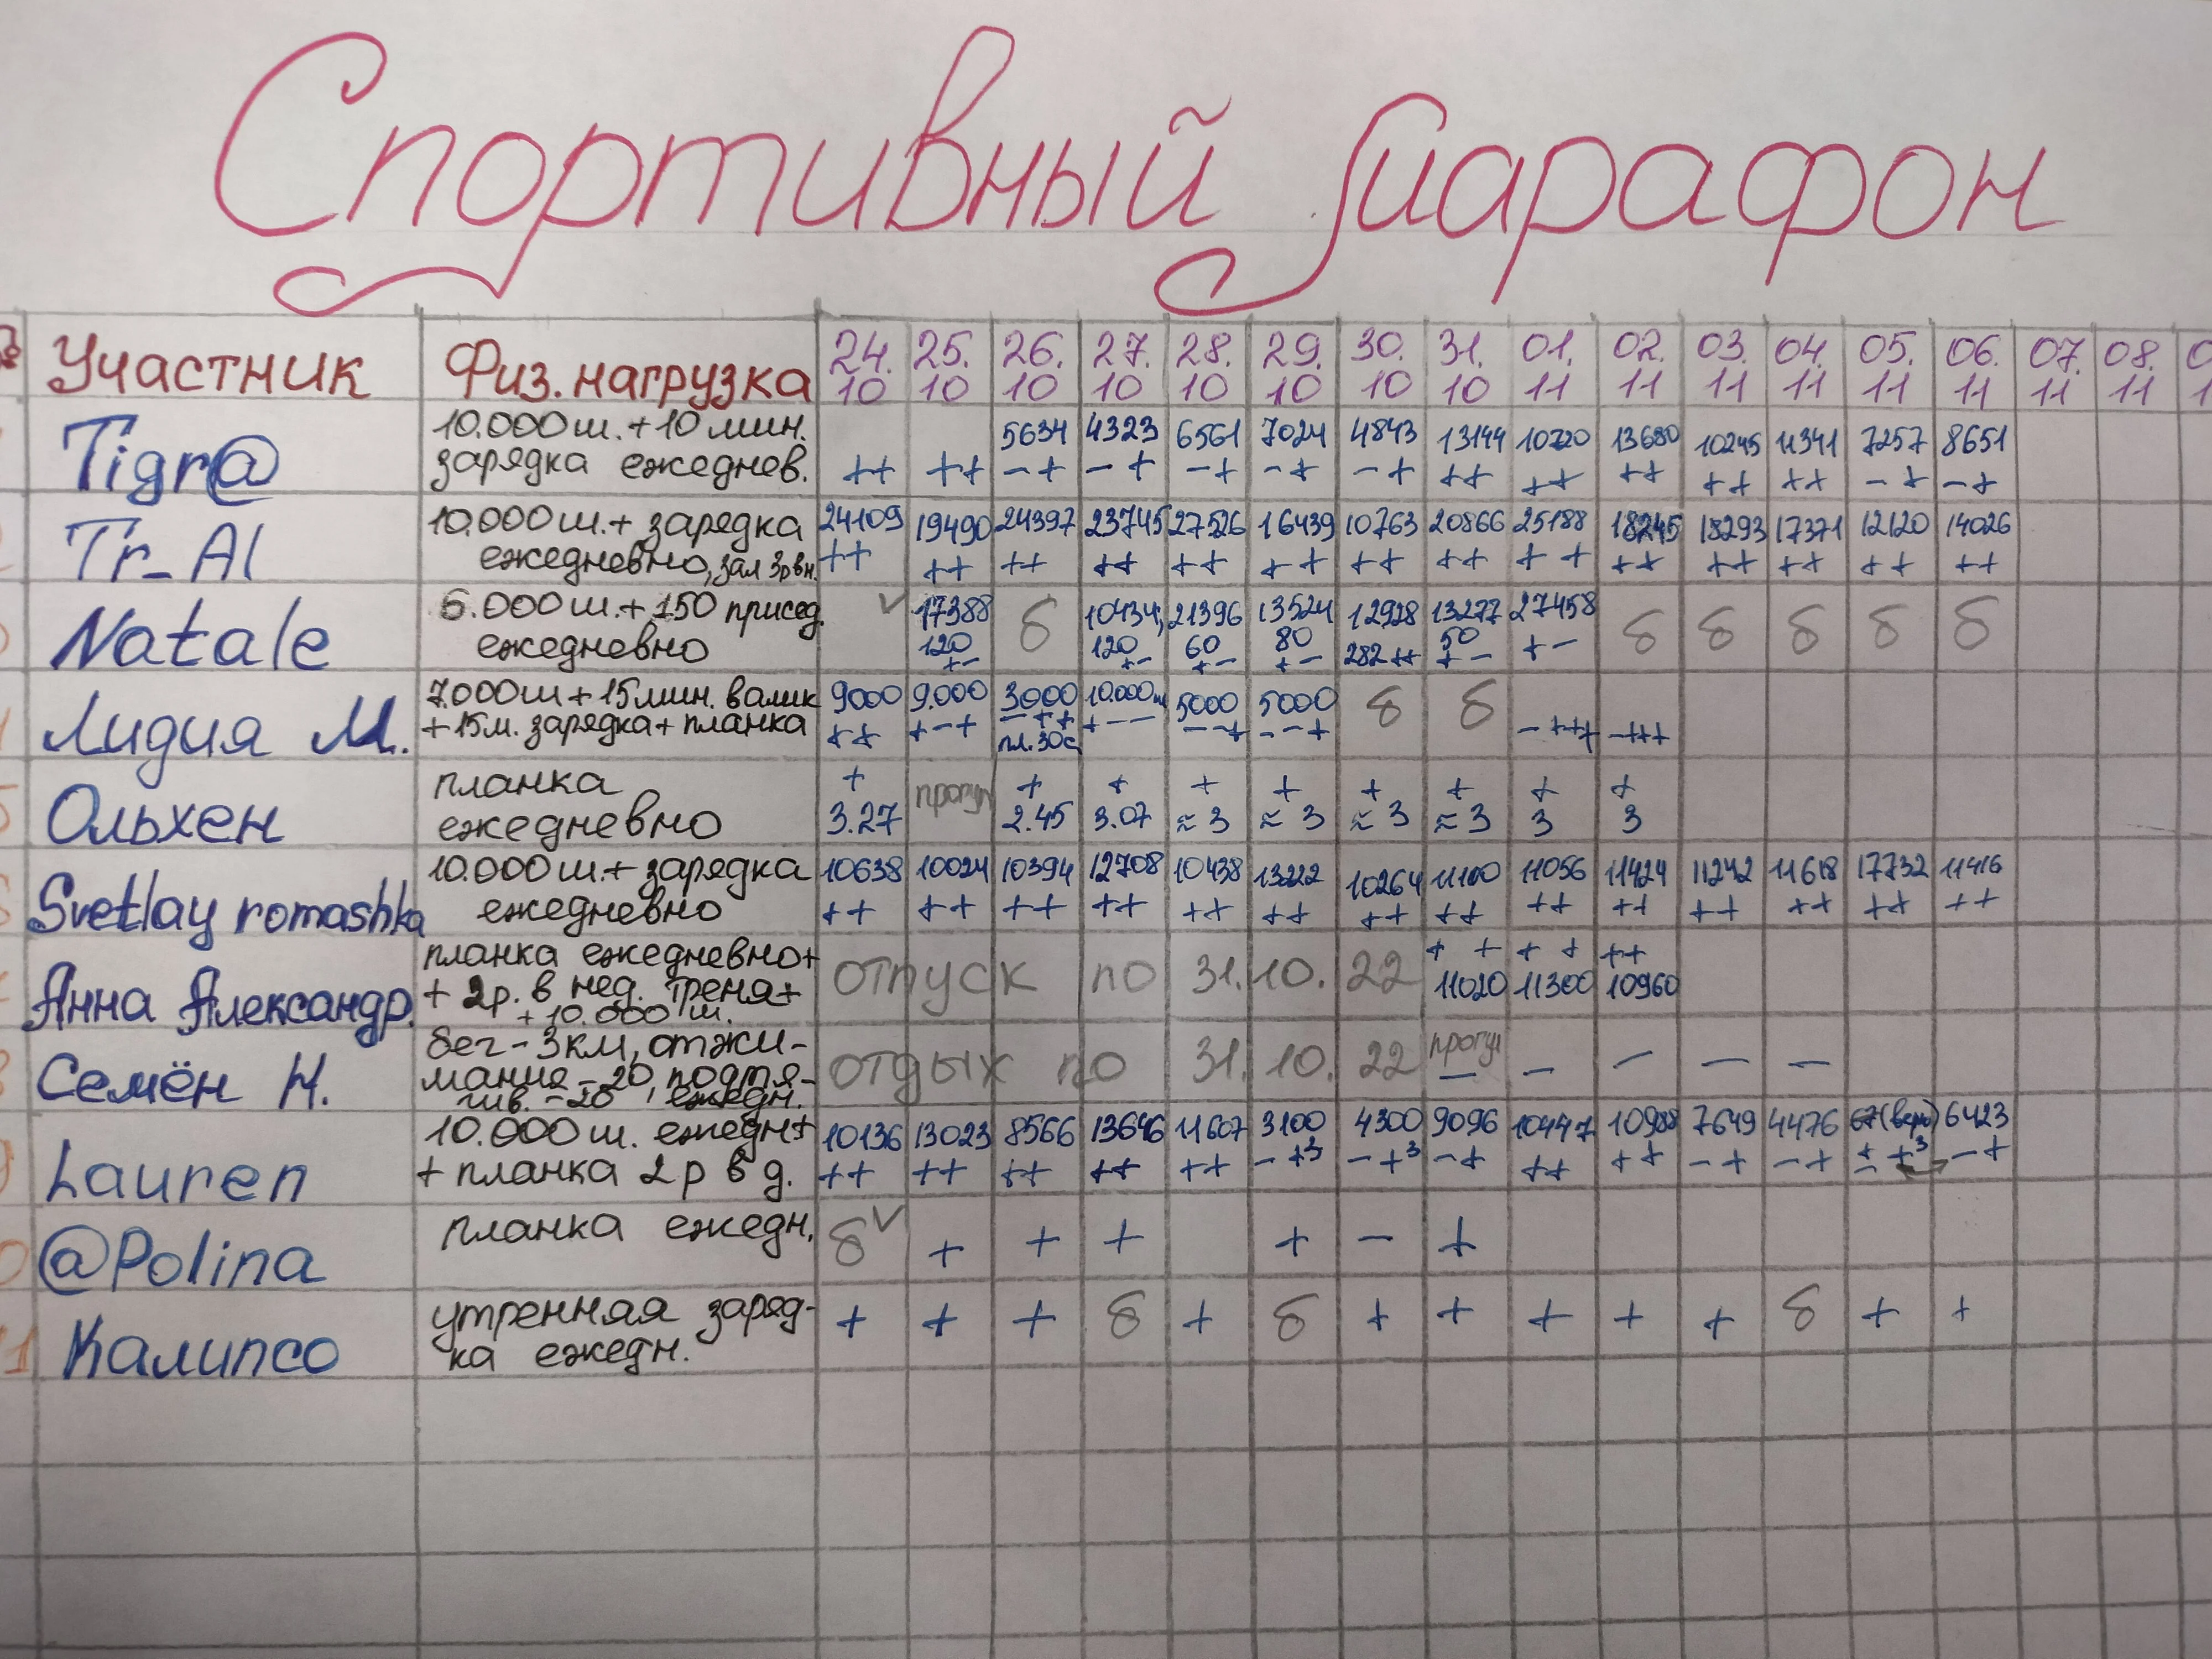 Спортивный марафон
№ Участник Физ. нагрузка 24.10 25.10 26.10 27.10 28.10 29.10 30.10 31.10 01.11 02.11 03.11 04.11 05.11 06.11 07.11 08.11
Tigr@ 10.000 ш. + 10 мин. 5634 4323 6561 7024 4843 13144 10720 13680 10245 11341 7257 8651
зарядка ежеднев. ++ ++ -+ -+ -+ -+ -+ ++ ++ ++ ++ ++ -+ -+
Tr_Al 10.000 ш. + зарядка 24109 19490 24397 23745 27526 16439 10763 20866 25188 18245 18293 17371 12120 14026
ежедневно, зал 3р вн. ++ ++ ++ ++ ++ ++ ++ ++ ++ ++ ++ ++ ++ ++
Natale 6.000 ш. + 150 присед. ✓ 17388 б 10434, 21396 13524 12928 13277 27458 б б б б б
ежедневно 120 +- 120 +- 60 +- 80 +- 282 ++ 50 +- +-
Лидия М. 7000 ш + 15 мин. валик 9000 9.000 3000 10.000 ш 5000 5000 б б
+ 15 м. зарядка + планка ++ +-+ -++ +-- --+ --+ -+++ -+++
пл. 30с
Ольхен планка + прогул + + + + + + + +
ежедневно 3.27 2.45 3.07 ≈3 ≈3 ≈3 ≈3 3 3
Svetlay romashka 10.000 ш. + зарядка 10638 10024 10394 12708 10438 13222 10264 11100 11056 11424 11242 11618 17732 11416
ежедневно ++ ++ ++ ++ ++ ++ ++ ++ ++ ++ ++ ++ ++ ++
Анна Александр. планка ежедневно + ++ ++ ++
+ 2р. в нед. треня + отпуск по 31.10.22 11020 11300 10960
+ 10.000 ш.
Семён Н. бег - 3 км, отжи- прогул
мания - 20, подтя- отдых по 31.10.22 - - - - -
гив. - 20, ежедн.
Lauren 10.000 ш. ежедн + 10136 13023 8566 13646 11607 3100 4300 9096 10447 10988 7649 4476 6423
+ планка 2 р в д. ++ ++ ++ ++ ++ -+3 -+3 -+ ++ ++ -+ -+ -+
@Polina планка ежедн. б ✓ + + + + - +
11 Калипсо утренняя заряд- + + + б + б + + + + + б + +
ка ежедн.